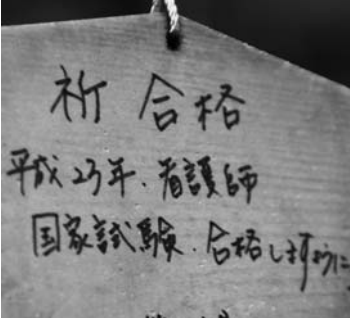 祈合格
平成23年、看護師
国家試験、合格しますように